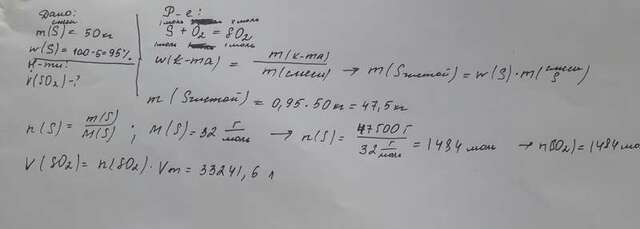 Дано:
смеси
m(S) = 50 кг
w(S) = 100-5=95%
Н-ти:
V(SO₂)-?
Р-е:
1 моль 1 моль
S + O₂ = SO₂
1 моль 1 моль
w(к-та) = m(к-та) / m(смеси) → m(S чистой) = w(S) · m(смеси S)
m (S чистой) = 0,95 · 50 кг = 47,5 кг
n(S) = m(S) / M(S) ; M(S) = 32 г/моль → n(S) = 47500 г / 32 г/моль = 1484 моль → n(SO₂) = 1484 мо
V(SO₂) = n(SO₂) · Vm = 33241,6 л